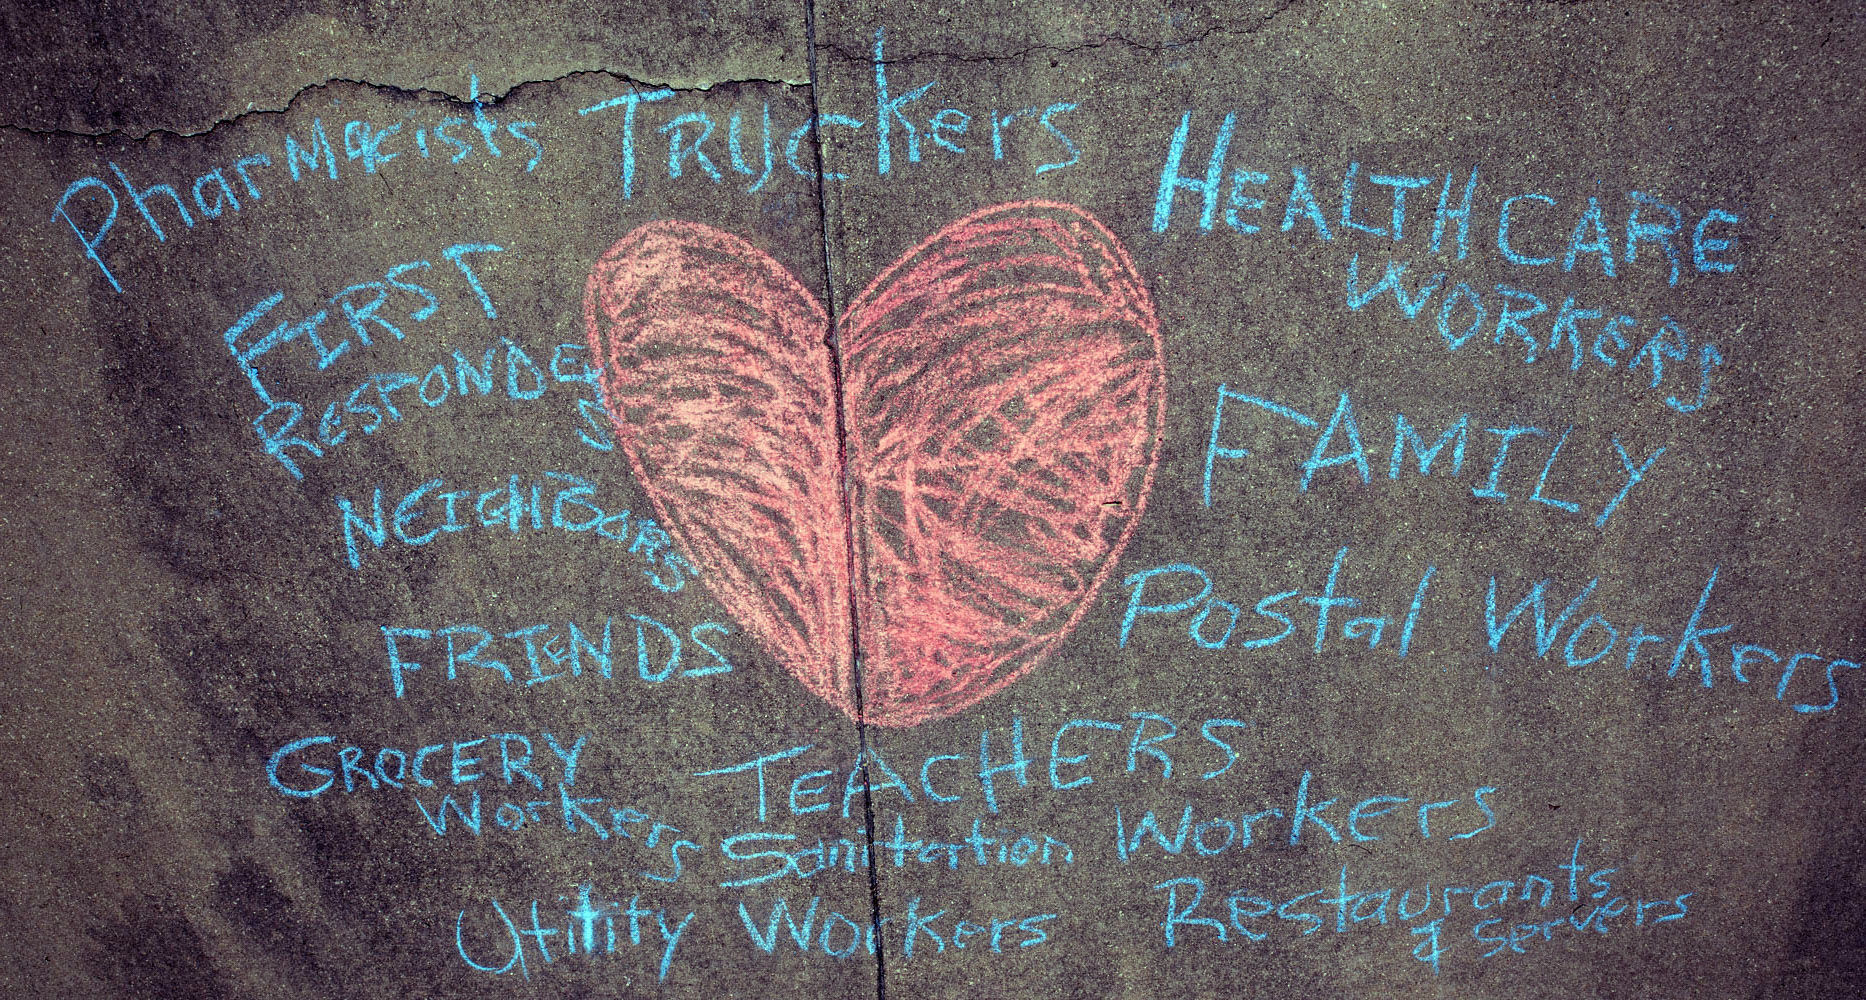 Pharmacists
TRUckers
HEALTHCARE
WORKERS
FIRST
RESPONDE
S
FAMILY
NEIGHBORS
Postal Workers
FRIENDS
GROCERY
Workers
TEACHERS
Sanitation Workers
Utility Workers
Restaurants
& Servers